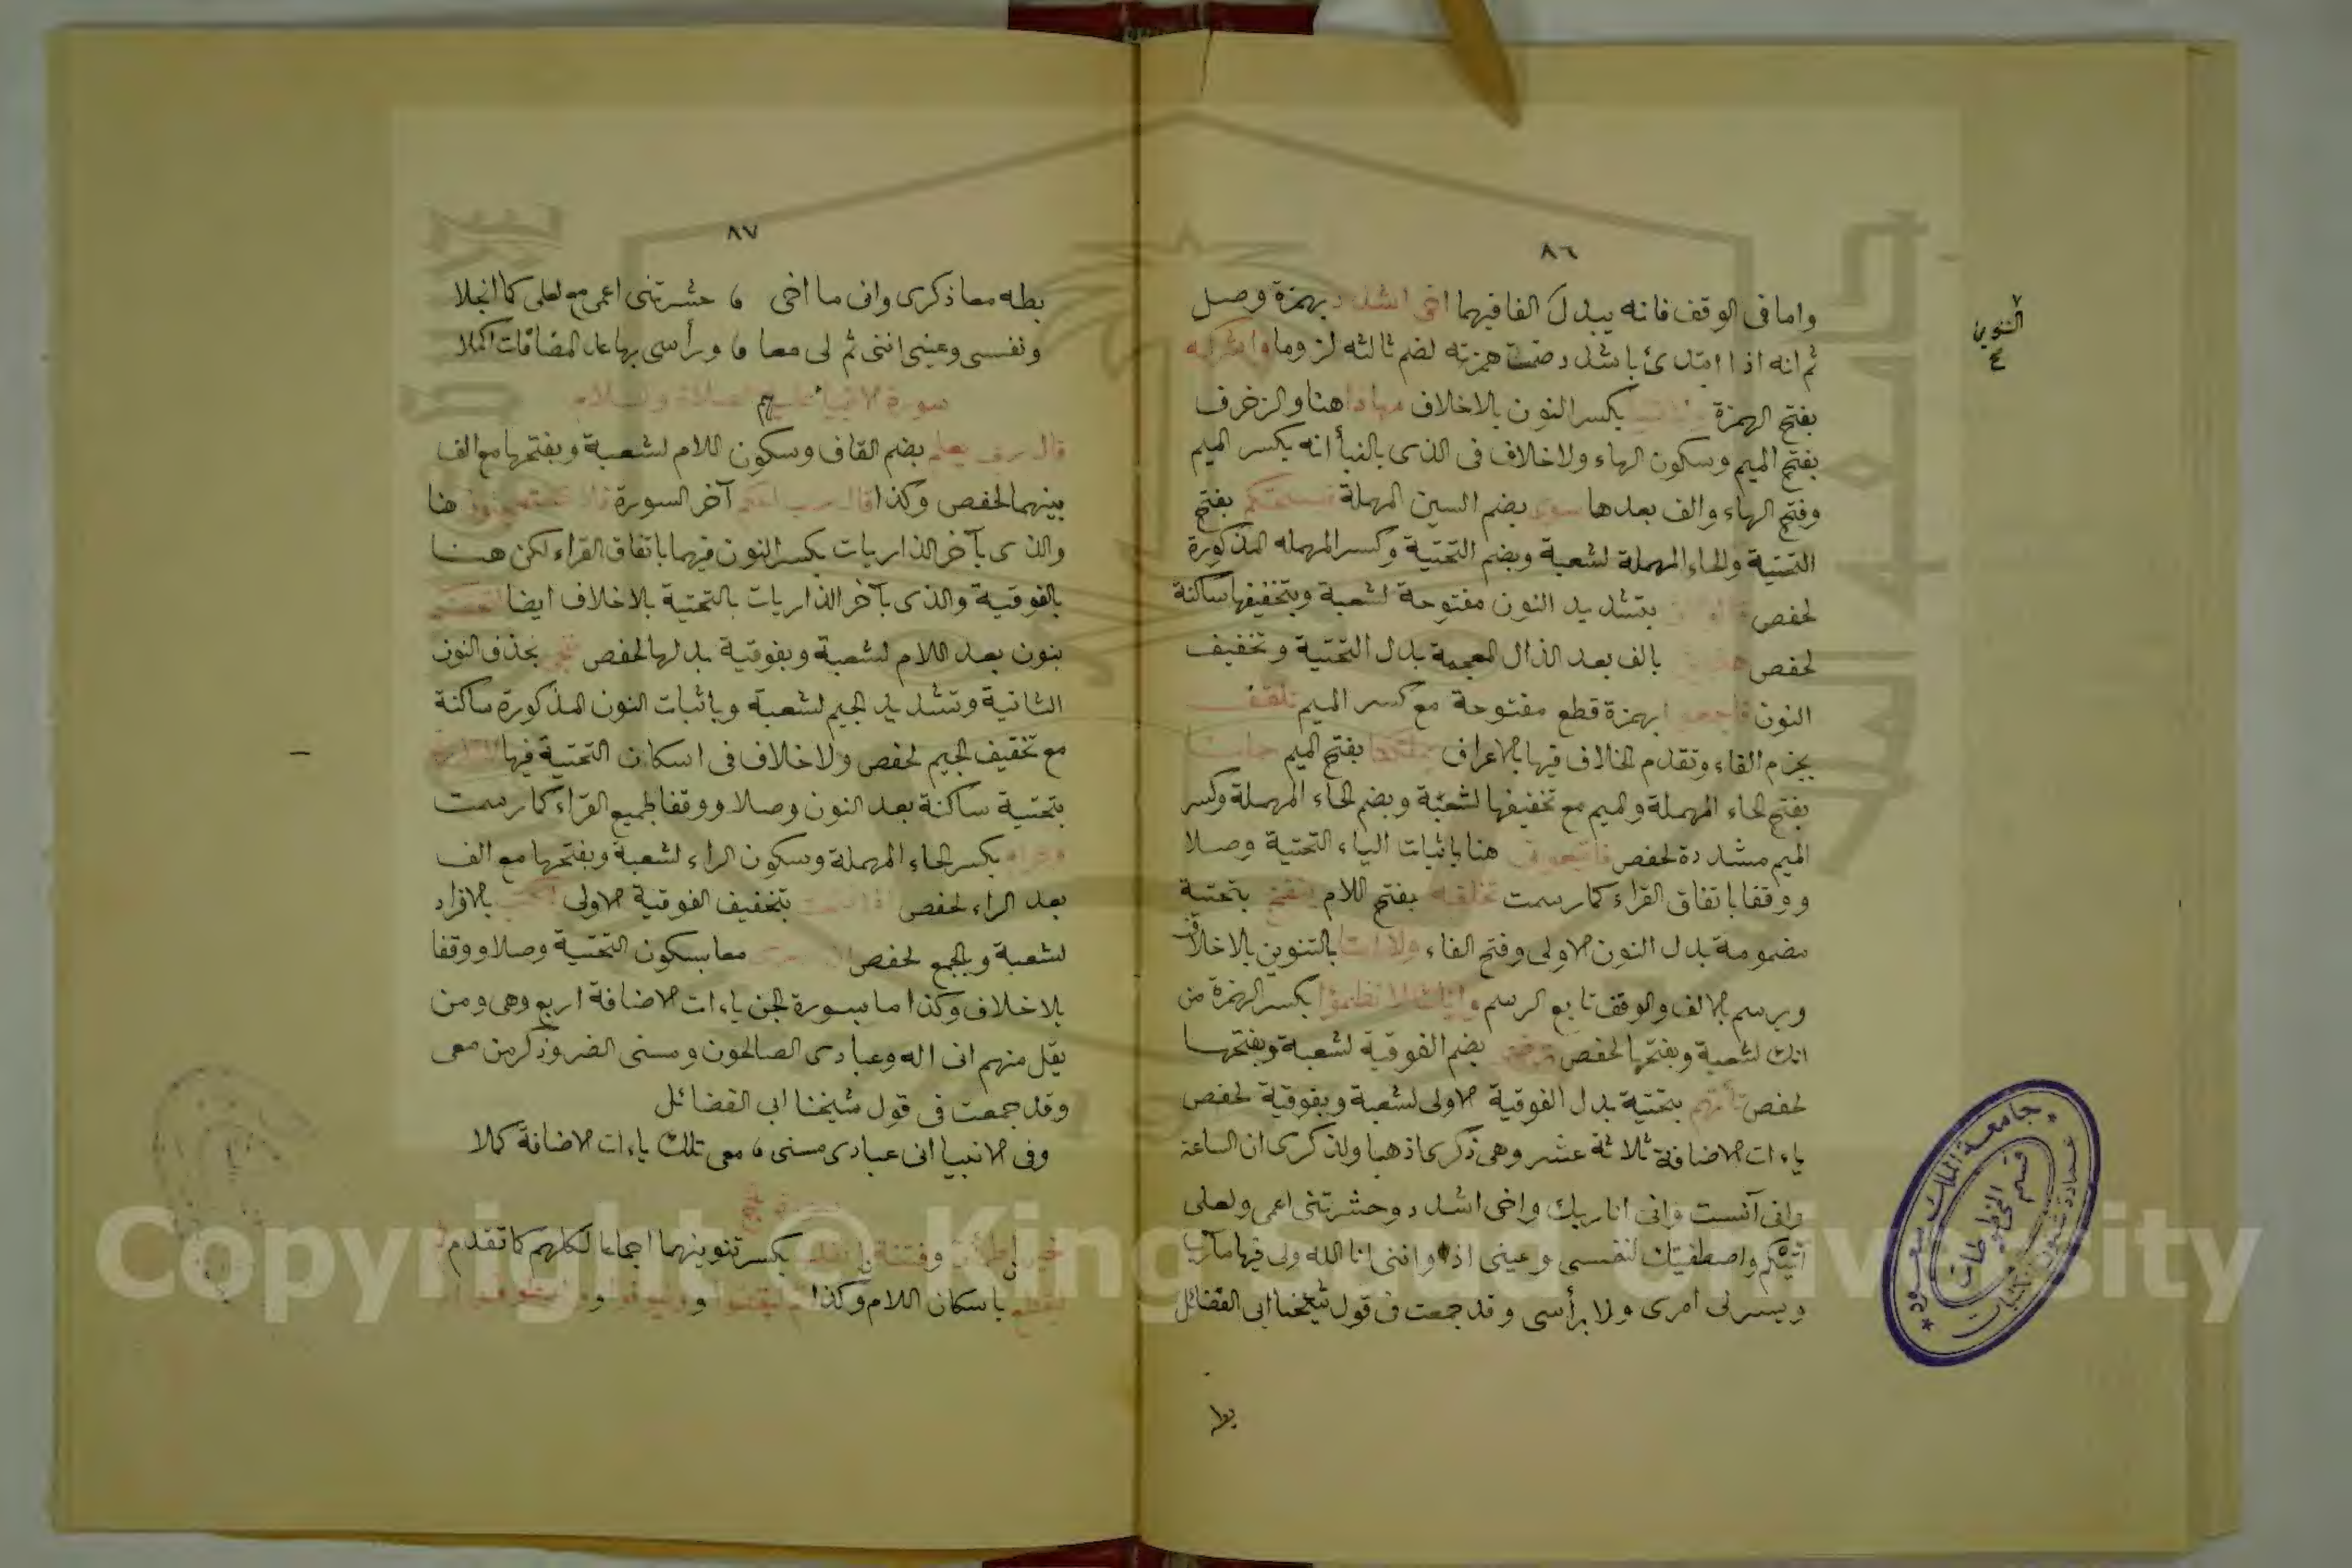 ٨٦
واما فى الوقف فانه يبدل الفا فيهما اخى اشدد بهمزة وصل
ثم انه اذا ابتدئ باشدد ضمت همزته لضم ثالثه لزوما واشركه
بفتح الهمزة بكسر النون بلاخلاف مهادا هنا والزخرف
بفتح الميم وسكون الهاء ولاخلاف فى الذى بالنبأ انه بكسر الميم
وفتح الهاء والف بعدها سوى بضم السين المهملة فيسحتكم بفتح
التحتية والحاء المهملة لشعبة وبضم التحتية وكسر المهمله المذكورة
لحفص بتشديد النون مفتوحة لشعبة وبتخفيفها ساكنة
لحفص هذين بالف بعد الذال المعجمة بدل التحتية وتخفيف
النون فاجمعوا بهمزة قطع مفتوحة مع كسر الميم تلقف
بجزم الفاء وتقدم الخلاف فيها بالاعراف بملكنا بفتح الميم حملنا
بفتح الحاء المهملة والميم مع تخفيفها لشعبة وبضم الحاء المهملة وكسر
الميم مشددة لحفص فاتبعونى هنا باثبات الياء التحتية وصلا
ووقفا باتفاق القراء كما رسمت تخلفه بفتح اللام ينفخ بتحتية
مضمومة بدل النون الاولى وفتح الفاء ولا امتا بالتنوين بلاخلاف
ويرسم بالالف والوقف تابع الرسم وانك لا تظمؤا بكسر الهمزة من
انك لشعبة وبفتحها لحفص ترضى بضم الفوقية لشعبة وبفتحها
لحفص تأتهم بتحتية بدل الفوقية الاولى لشعبة وبفوقية لحفص
ياءات الاضافة ثلاثة عشر وهى ذكرى اذهبا ولذكرى ان الساعة
وانى آنست وانى انا ربك واخى اشدد وحشرتنى اعمى ولعلى
آتيكم واصطفيتك لنفسى وعينى اذ وانى انا الله ولى فيها مآرب
ويسر لى امرى ولا برأسى وقد جمعت فى قول شيخنا ابى الفضائل
بطه
التنوين
صح
جامعة الملك سعود
عمادة شؤون المكتبات
قسم المخطوطات
٨٧
بطه معا ذكرى وانى ما اخى ، حشرتنى اعمى مع لعلى كما انجلا
ونفسى وعينى اننى ثم لى معا ، ورأسى بها عد المضافات اكملا
سورة الانبياء عليهم الصلاة والسلام
قال ربى يعلم بضم القاف وسكون اللام لشعبة وبفتحها مع الف
بينهما لحفص وكذا قال رب احكم آخر السورة فلا تستعجلون هنا
والذى بآخر الذاريات بكسر النون فيهما باتفاق القراء لكن هنا
بالفوقية والذى بآخر الذاريات بالتحتية بلاخلاف ايضا لتحصنكم
بنون بعد اللام لشعبة وبفوقية بدلها لحفص ننجى بحذف النون
الثانية وتشديد الجيم لشعبة وباثبات النون المذكورة ساكنة
مع تخفيف الجيم لحفص ولاخلاف فى اسكان التحتية فيها
بتحتية ساكنة بعد النون وصلا ووقفا لجميع القراء كما رسمت
وحرام بكسر الحاء المهملة وسكون الراء لشعبة وبفتحها مع الف
بعد الراء لحفص اذا فتحت بتخفيف الفوقية الاولى للكتب بالافراد
لشعبة وبالجمع لحفص معا بسكون التحتية وصلا ووقفا
بلاخلاف وكذا ما بسورة الجن ياءات الاضافة اربع وهى ومن
يقل منهم انى اله وعبادى الصالحون ومسنى الضر وذكر من معى
وقد جمعت فى قول شيخنا ابى الفضائل
وفى الانبيا انى عبادى مسنى ، معى تلك ياءات الاضافة كملا
سورة الحج
خير اطمأن وفتنة انقلب بكسر تنوينهما اجماعا لكلهم كما تقدم
ليقطع باسكان اللام وكذا ليقضوا وليوفوا وليطوفوا
Copyright © King Saud University